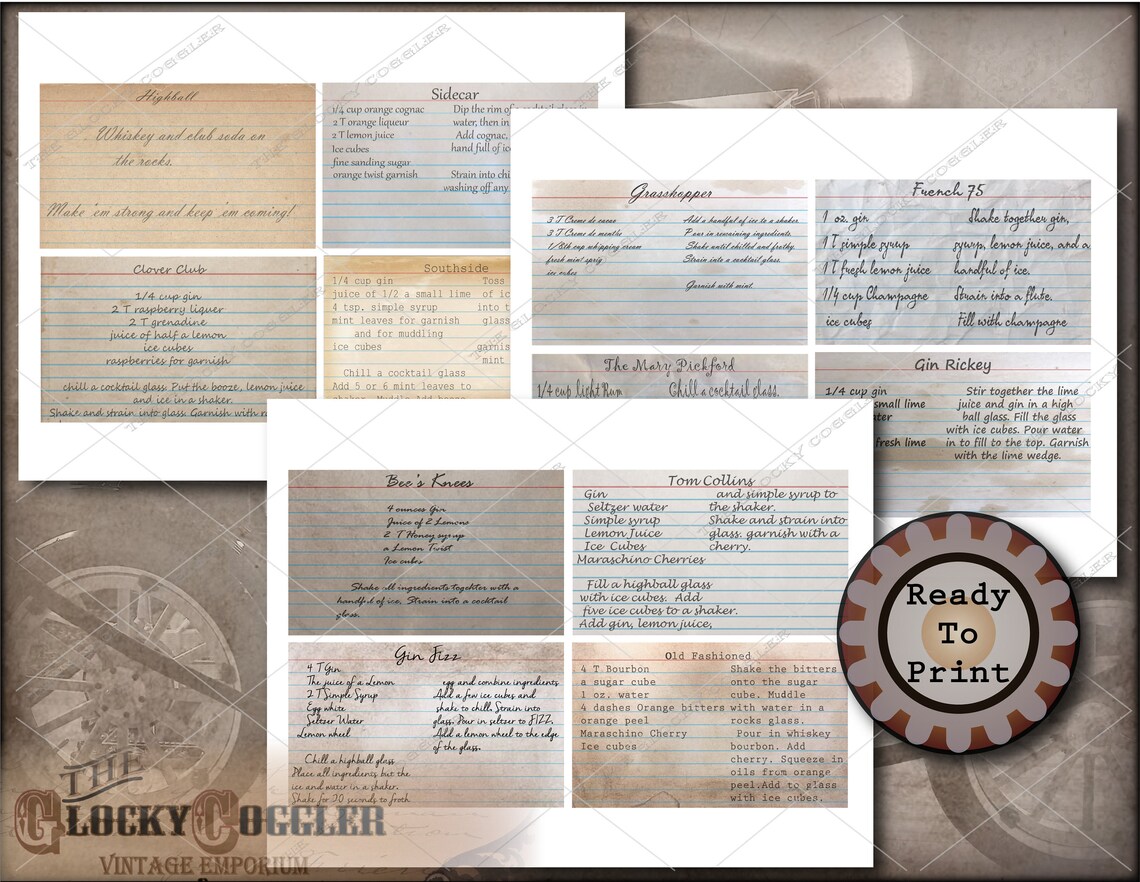 Highball
Whiskey and club soda on
the rocks.
Make 'em strong and keep 'em coming!
Sidecar
1/4 cup orange cognac
2 T orange liqueur
2 T lemon juice
Ice cubes
fine sanding sugar
orange twist garnish
Dip the rim of a cocktail glass
water, then in
Add cognac,
hand full of ice
Strain into chi
washing off any
Clover Club
1/4 cup gin
2 T raspberry liquer
2 T grenadine
juice of half a lemon
ice cubes
raspberries for garnish
chill a cocktail glass. Put the booze, lemon juice
and ice in a shaker.
Shake and strain into glass Garnish with r
Southside
1/4 cup gin
juice of 1/2 a small lime
4 tsp. simple syrup
mint leaves for garnish
and for muddling
ice cubes
Chill a cocktail glass
Add 5 or 6 mint leaves to
Toss
of ic
into t
glass
garnis
mint
Grasshopper
3 T Creme de cacao
3 T Creme de menthe
1/8th cup whipping cream
fresh mint sprig
ice cubes
Add a handful of ice to a shaker
Pour in remaining ingredients.
Shake until chilled and frothy.
Strain into a cocktail glass.
Garnish with mint
French 75
1 oz. gin
1 T simple syrup
1 T fresh lemon juice
1/4 cup Champagne
ice cubes
Shake together gin,
syrup, lemon juice, and a
handful of ice.
Strain into a flute.
Fill with champagne
The Mary Pickford
1/4 cup light Rum
Chill a cocktail glass.
Gin Rickey
1/4 cup gin
small lime
ter
fresh lime
Stir together the lime
juice and gin in a high
ball glass. Fill the glass
with ice cubes. Pour water
in to fill to the top. Garnish
with the lime wedge.
Bee's Knees
4 ounces Gin
Juice of 2 Lemons
2 T Honey syrup
a Lemon Twist
Ice cubes
Shake all ingredients togehter with a
handful of ice. Strain into a cocktail
glass.
Tom Collins
Gin
Seltzer water
Simple syrup
Lemon Juice
Ice Cubes
Maraschino Cherries
Fill a highball glass
with ice cubes. Add
five ice cubes to a shaker.
Add gin, lemon juice,
and simple syrup to
the shaker.
Shake and strain into
glass. garnish with a
cherry.
Gin Fizz
4 T Gin
The juice of a Lemon
2 T Simple Syrup
Egg white
Seltzer Water
Lemon wheel
Chill a highball glass
Place all ingredients but the
ice and water in a shaker.
Shake for 20 seconds to froth
egg and combine ingredients
Add a few ice cubes and
shake to chill. Strain into
glass. Pour in seltzer to FIZZ.
Add a lemon wheel to the edge
of the glass.
Old Fashioned
4 T Bourbon
a sugar cube
1 oz. water
4 dashes Orange bitters
orange peel
Maraschino Cherry
Ice cubes
Shake the bitters
onto the sugar
cube. Muddle
with water in a
rocks glass.
Pour in whiskey
bourbon. Add
cherry. Squeeze in
oils from orange
peel.Add to glass
with ice cubes.
Ready
To
Print
THE
GLOCKY COGGLER
VINTAGE EMPORIUM